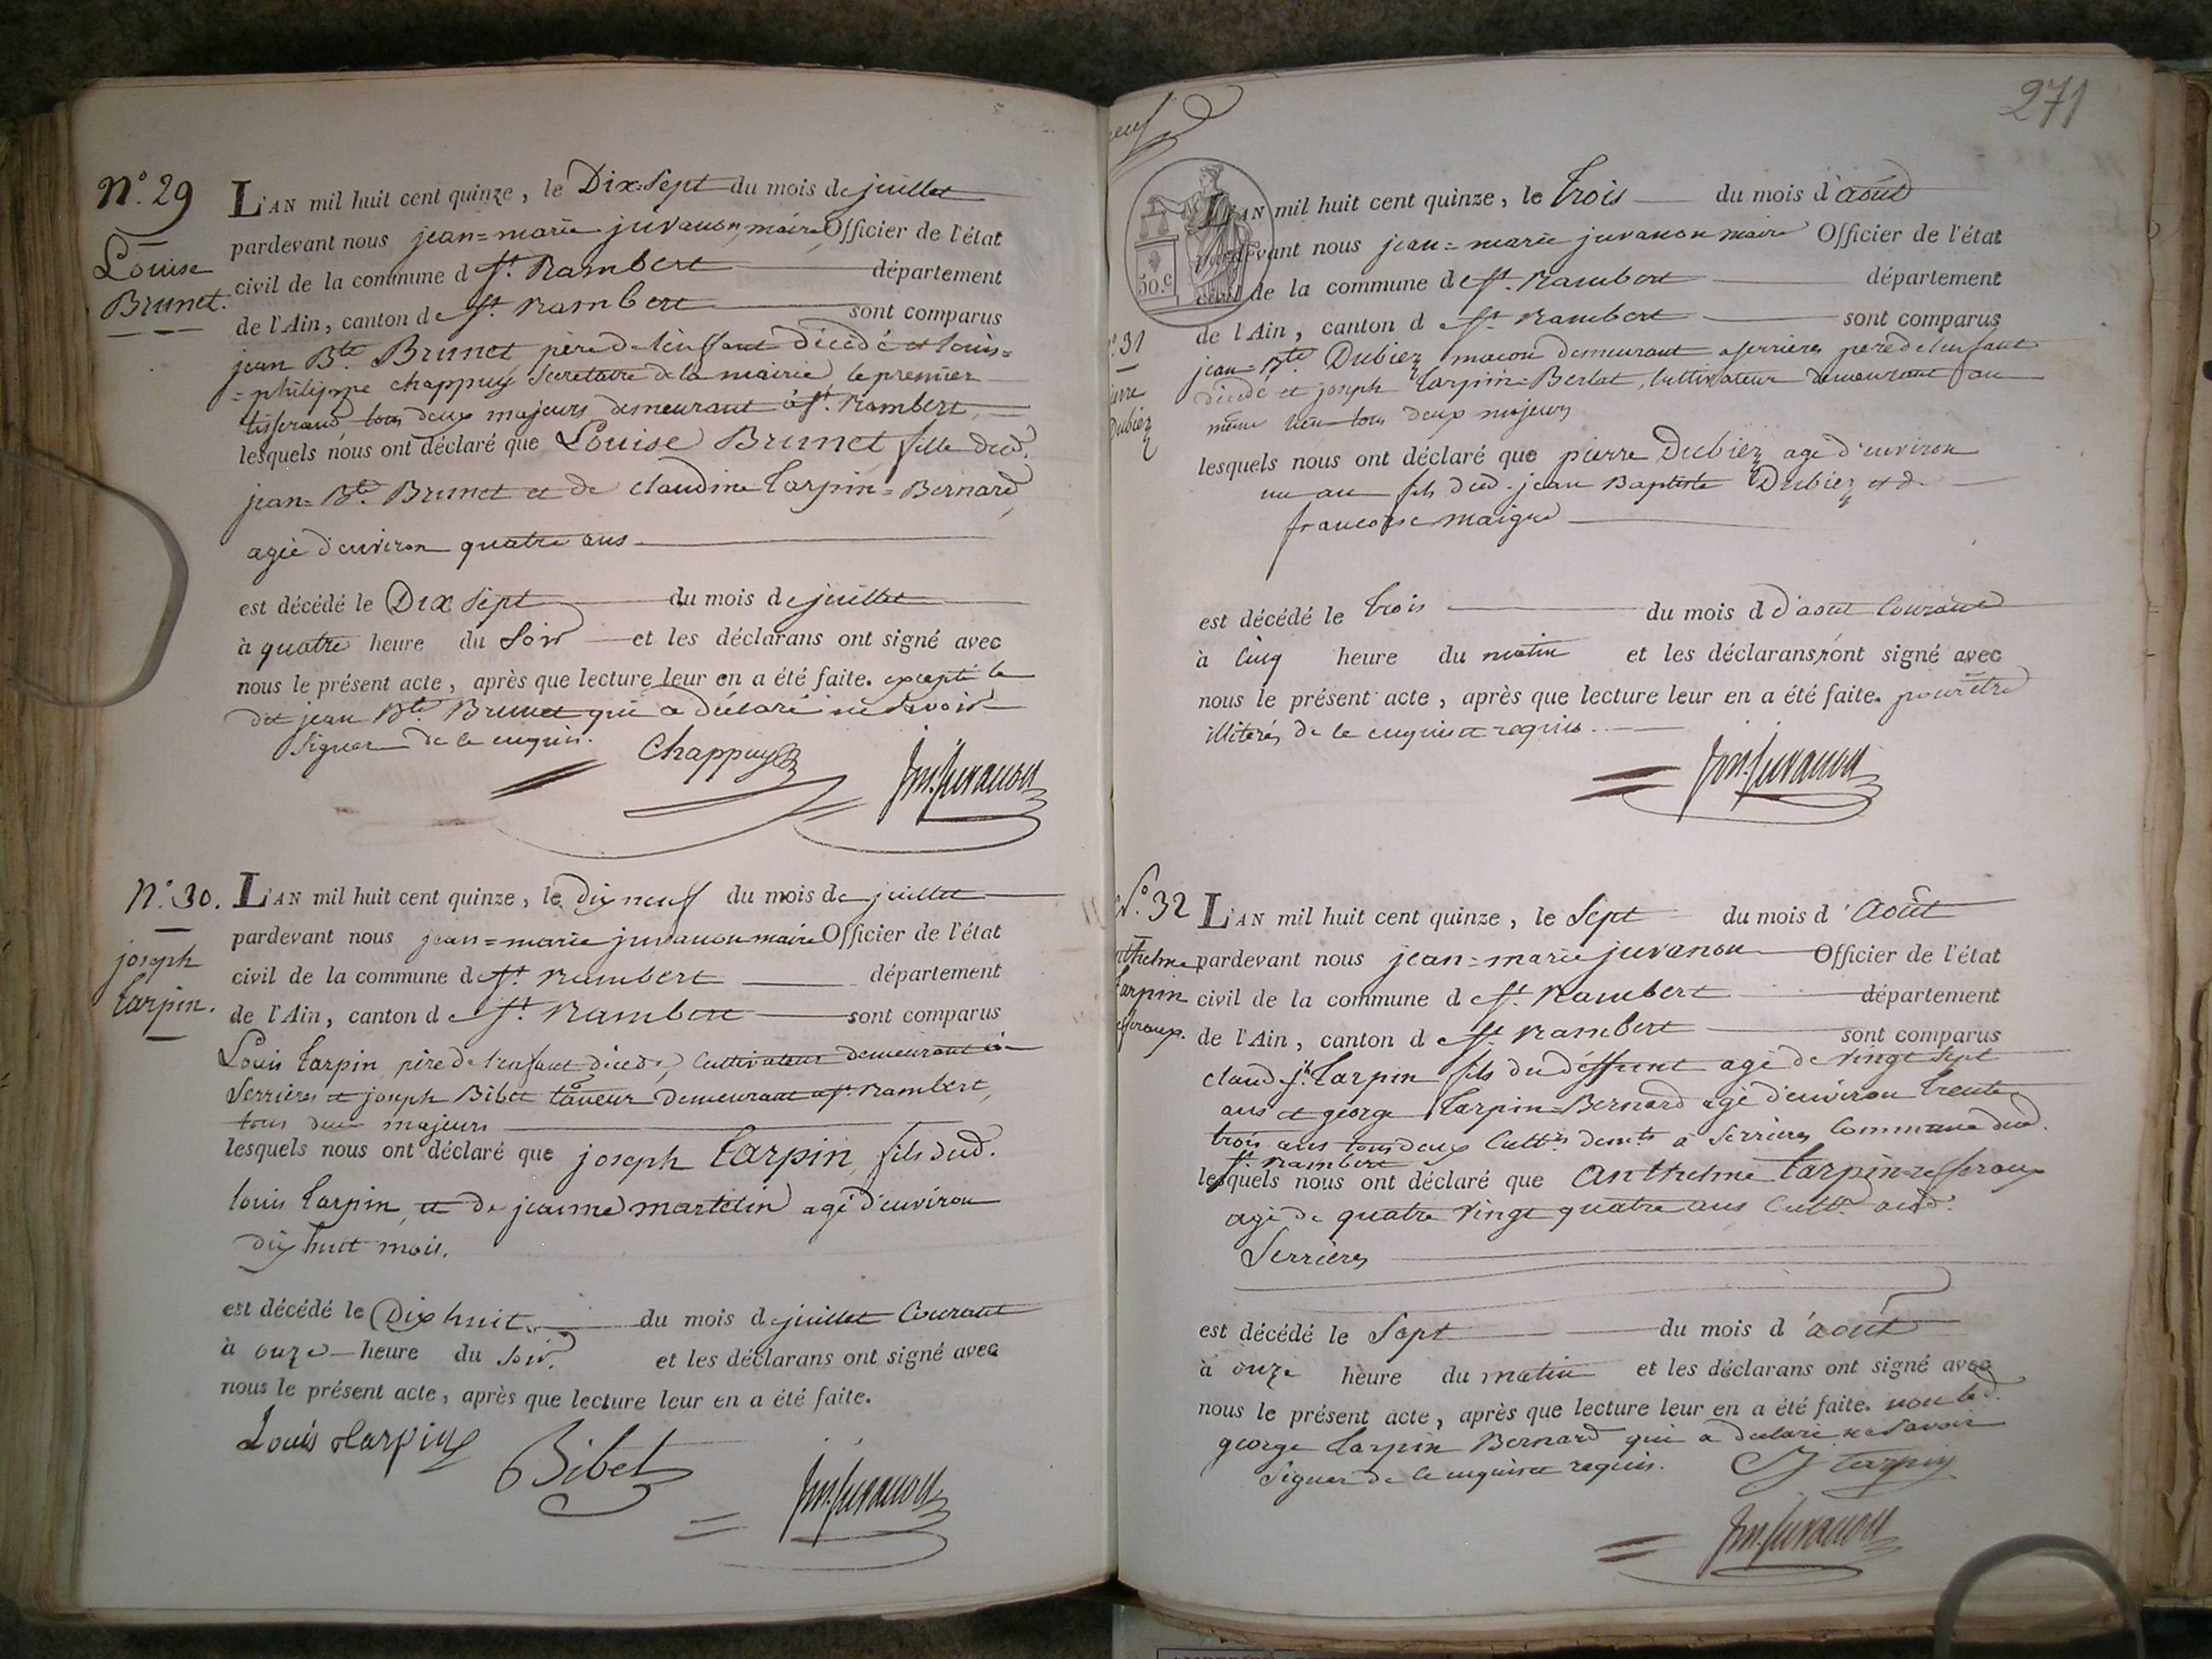 N.° 29
Louise
Brunet.
L'AN mil huit cent quinze, le Dix-Sept du mois de juillet
pardevant nous jean=marie juvanon, maire Officier de l'état
civil de la commune de St. Rambert département
de l'Ain, canton de St. Rambert sont comparus
jean Bte. Brunet père de l'enfant décédé et louis=
=philippe chappuy Secretaire de la mairie, le premier
tisserand, tous deux majeurs demeurant à St. Rambert,
lesquels nous ont déclaré que Louise Brunet fille dud.
jean=Bte. Brunet et de claudine Tarpin=Bernard,
agée d'environ quatre ans
est décédé le Dix Sept du mois de juillet
à quatre heure du Soir et les déclarans ont signé avec
nous le présent acte, après que lecture leur en a été faite. excepté le
dit jean Bte. Brunet qui a déclaré ne Savoir
Signer de ce enquis.
Chappuy
jm. Juvanon
N.° 30.
joseph
tarpin.
L'AN mil huit cent quinze, le dix neuf du mois de juillet
pardevant nous jean=marie juvanon maire Officier de l'état
civil de la commune de St. Rambert département
de l'Ain, canton de St. Rambert sont comparus
Louis tarpin père de l'enfant décédé, Cultivateur demeurant à
Serrières et joseph Bibet taneur demeurant a St. Rambert,
tous deux majeurs
lesquels nous ont déclaré que joseph tarpin, fils dud.
louis tarpin, et de jeanne martelin agé d'environ
dix huit mois.
est décédé le Dix huit du mois de juillet Courant
à onze heure du Soir. et les déclarans ont signé avec
nous le présent acte, après que lecture leur en a été faite.
Louis tarpin
Bibet
jm. Juvanon
271
50.c
31
Dubiez
L'AN mil huit cent quinze, le trois du mois d'août
pardevant nous jean=marie juvanon maire Officier de l'état
civil de la commune de St. Rambert département
de l'Ain, canton de St. Rambert sont comparus
jean=Bte. Dubiez maçon demeurant a serrières père de l'enfant
décédé et joseph tarpin=Berlat, cultivateur demeurant au
même lieu tous deux majeurs
lesquels nous ont déclaré que pierre Dubiez agé d'environ
un an fils dud. jean Baptiste Dubiez et de
francoise maigre
est décédé le trois du mois d d'aout Courant
à Cinq heure du matin et les déclarans n'ont signé avec
nous le présent acte, après que lecture leur en a été faite. pour être
illiterés de ce enquis et requis.
jm. Juvanon
N.° 32
nthelme
tarpin
L'AN mil huit cent quinze, le Sept du mois d'Août
pardevant nous jean=marie juvanon Officier de l'état
civil de la commune de St. Rambert département
de l'Ain, canton de St. Rambert sont comparus
claude jh. tarpin fils du déffunt agé de vingt Sept
ans et george tarpin=Bernard agé d'environ trente
trois ans tous deux Cultrs. demts. a Serrières Commune dud.
St. Rambert
lesquels nous ont déclaré que anthelme tarpin
agé de quatre vingt quatre ans Cultr. aud.
Serrières
est décédé le Sept du mois d'août
à onze heure du matin et les déclarans ont signé avec
nous le présent acte, après que lecture leur en a été faite. non led.
george tarpin Bernard qui a déclaré ne Savoir
Signer de ce enquis et requis.
tarpin
jm. Juvanon